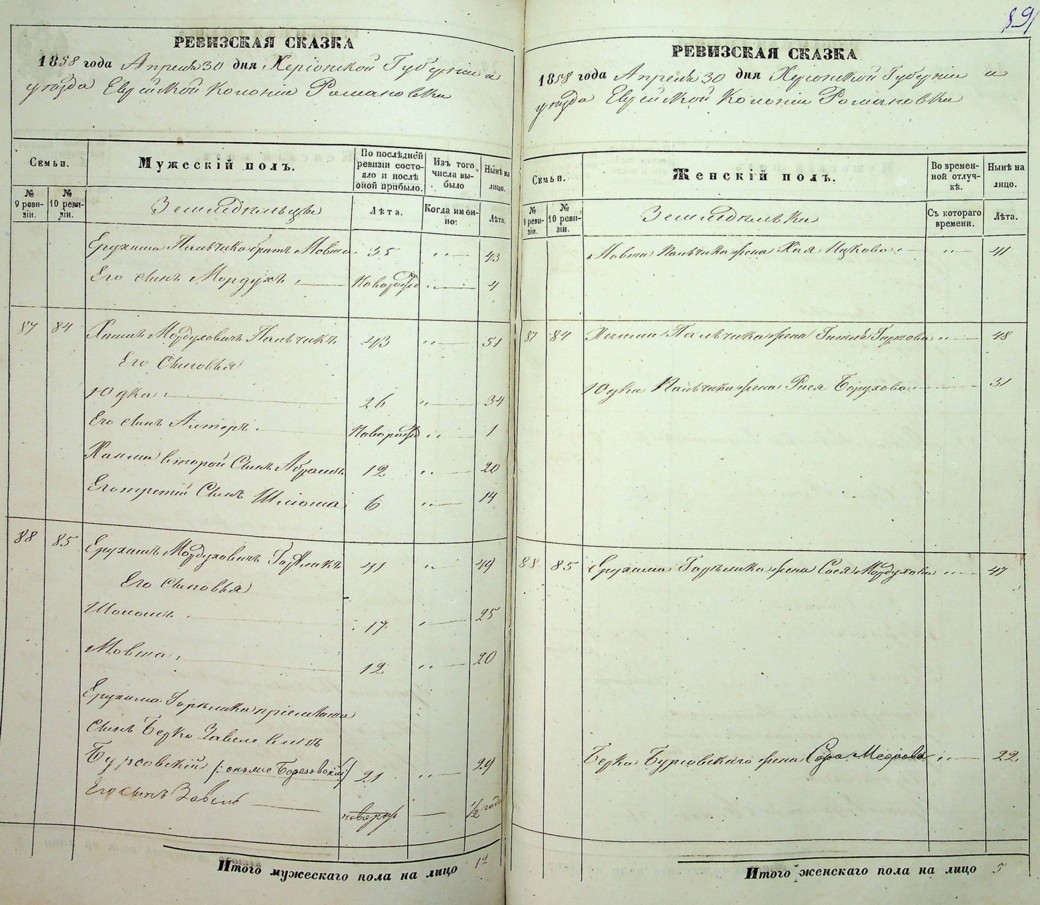 РЕВИЗСКАЯ СКАЗКА
1858 года Апреля 30 дня Херсонской Губернии и
уезда Еврейской Колонии Романовки
Семьи.
Мужескій полъ.
По послѣдней ревизіи состояло и послѣ оной прибыло.
Изъ того числа выбыло
Нынѣ на лицо.
№ 9 ревизіи.
№ 10 ревизіи.
Земледѣльцы
Лѣта.
Когда именно:
Лѣта.
Ерухима Пальчика братъ Мовша 35 „ — 43
Его сынъ Мордухъ „ — 4
87 84 Хаимъ Мордуховичъ Пальчикъ 43 „ — 51
Его Сыновья
Юдка 26 „ — 34
Его сынъ Алтеръ „ — 1
Хаима второй Сынъ Абрамъ 12 „ — 20
Его третій Сынъ Шліома 6 „ — 14
88 85 Ерухимъ Мордуховичъ 41 „ — 49
Его Сыновья
17 „ — 25
Мовша 12 „ — 20
Ерухима Горелика пріемышъ
сынъ Берка
Бурсовскій 21 „ — 29
Его сынъ — ½ года
Итого мужескаго пола на лицо
89
РЕВИЗСКАЯ СКАЗКА
1858 года Апреля 30 дня Херсонской Губернии и
уезда Еврейской Колонии Романовки
Семьи.
Женскій полъ.
Во временной отлучкѣ.
Нынѣ на лицо.
№ 9 ревизіи.
№ 10 ревизіи.
Земледѣльки
Съ котораго времени.
Лѣта.
Мовши Пальчика жена Хая Ицкова „ — 41
87 84 Хаима Пальчика жена „ — 48
Юдки Пальчика жена Рися Борухова — 31
88 85 Ерухима Горелика жена Сося Мордухова „ — 47
Берки Бурсовскаго жена Сора Меерова „ — 22
Итого женскаго пола на лицо 5